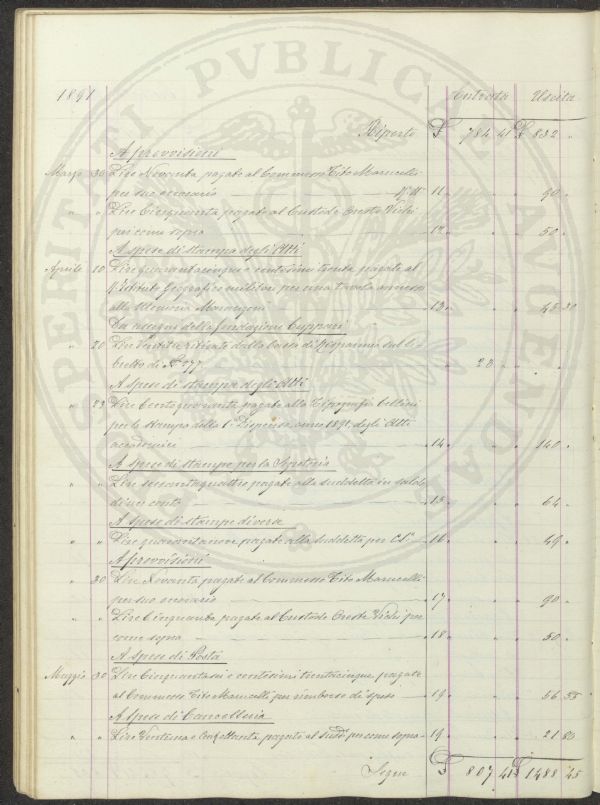 PROSPERITATI PVBLICAE AVGENDAE
1891 Entrata Uscita
Riporto £ 784 41 £ 832 "
A provvisioni
Marzo 30 Lire Novanta pagate al Commesso Tito Marucelli
per suo onorario N° 11 " 90 "
" " Lire Cinquanta pagate al Custode Oreste Vichi
per come sopra 12 " 50 "
A spese di stampa degli Atti
Aprile 10 Lire quarantacinque e centesimi trenta pagate al
R. Istituto Geografico militare per una tavola annessa
alla Memoria Marangoni 13 " 45 30
Da assegno della fondazione Cuppari
" 20 Lire Ventitre ritirate dalla Cassa di Risparmio sul li-
bretto di N° 277 " 23 " " "
A spese di stampa degli Atti
" 23 Lire Centoquaranta pagate alla Tipografia Cellini
per la stampa della 1ª Dispensa anno 1891, degli Atti
accademici 14 " 140 "
A spese di stampe per la Segreteria
" " Lire sessantaquattro pagate alla suddetta in saldo
di un conto 15 " 64 "
A spese di stampe diverse
" " Lire quarantanove pagate alla suddetta per C.S. 16 " 49 "
A provvisioni
" 30 Lire Novanta pagate al Commesso Tito Marucelli
per suo onorario 17 " 90 "
" " Lire Cinquanta pagate al Custode Oreste Vichi per
come sopra 18 " 50 "
A spese di Posta
Maggio 30 Lire Cinquantasei e centesimi trentacinque pagate
al Commesso Tito Marucelli per rimborso di spese 19 " 56 35
A spese di Cancelleria
" " Lire Ventuna e Cent. ottanta, pagate al sudd° per come sopra 19 " 21 80
Segue £ 807 41 £ 1488 45